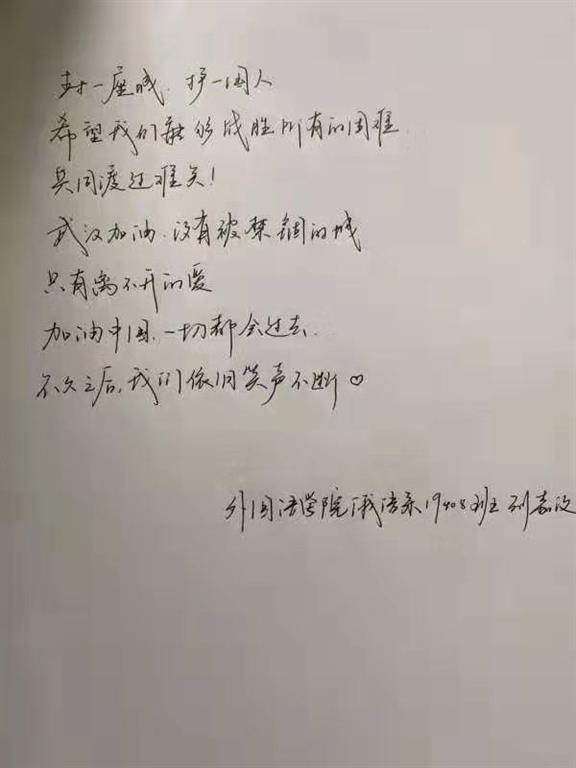 封一座城，护一国人
希望我们能够战胜所有的困难
共同渡过难关！
武汉加油.没有被禁锢的城
只有离不开的爱
加油中国.一切都会过去.
不久之后,我们依旧笑声不断♡
外国语学院俄语系19408班 刘嘉